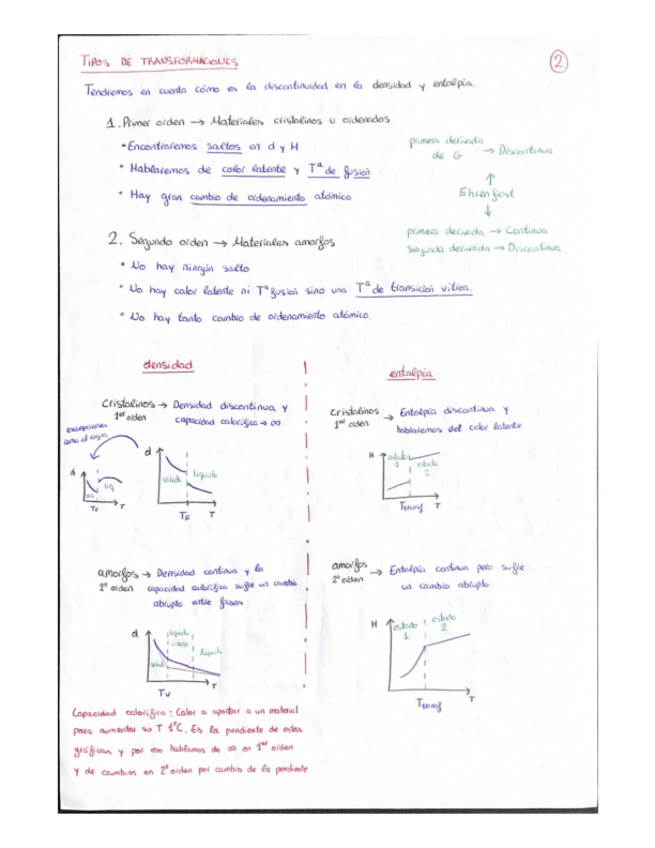 TIPOS DE TRANSFORMACIONES
2
Tendremos en cuenta cómo es la discontinuidad en la densidad y entalpía.
1. Primer orden → Materiales cristalinos u ordenados
• Encontraremos saltos en d y H
• Hablaremos de calor latente y Tª de fusión
• Hay gran cambio de ordenamiento atómico
primera derivada
de G → Discontinua
↑
Ehrenfest
↓
primera derivada → Continua
Segunda derivada → Discontinua
2. Segundo orden → Materiales amorfos
• No hay ningún salto
• No hay calor latente ni Tª fusión sino una Tª de transición vítrea.
• No hay tanto cambio de ordenamiento atómico.
densidad
Cristalinos → Densidad discontinua y
1er orden capacidad calorífica → ∞
excepciones
como el agua
d
sol
liq
TF
T
d
sólido
líquido
TF
T
amorfos → Densidad continua y la
2º orden capacidad calorífica sufre un cambio
abrupto entre fases
d
líquido
sólido
líquido
Tv
T
Capacidad calorífica: Calor a aportar a un material
para aumentar su T 1ºC. Es la pendiente de estas
gráficas y por eso hablamos de ∞ en 1er orden
y de cambios en 2º orden por cambio de la pendiente
entalpía
Cristalinos → Entalpía discontinua y
1er orden hablaremos del calor latente
H
estado
1
estado
2
Ttransf
T
amorfos → Entalpía continua pero sufre
2º orden un cambio abrupto
H
estado
1
estado
2
Ttransf
T